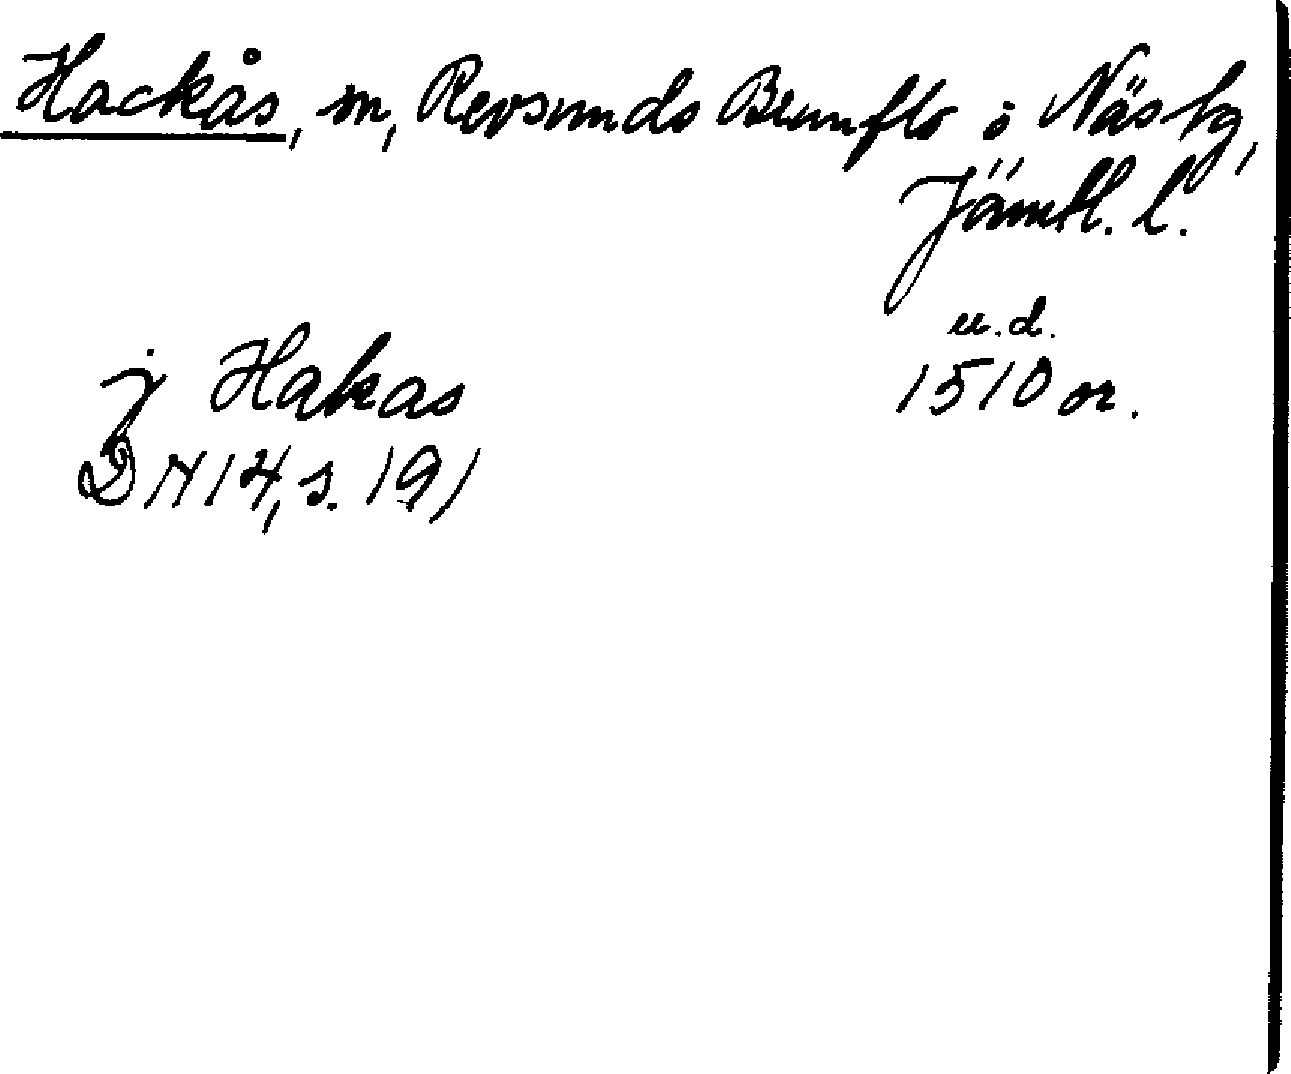 Hackås, sn, Revsunds Brunflo o Näs tg,
Jämtl. l.
u.d.
j Hakas 1510 or.
DN 14, s. 191